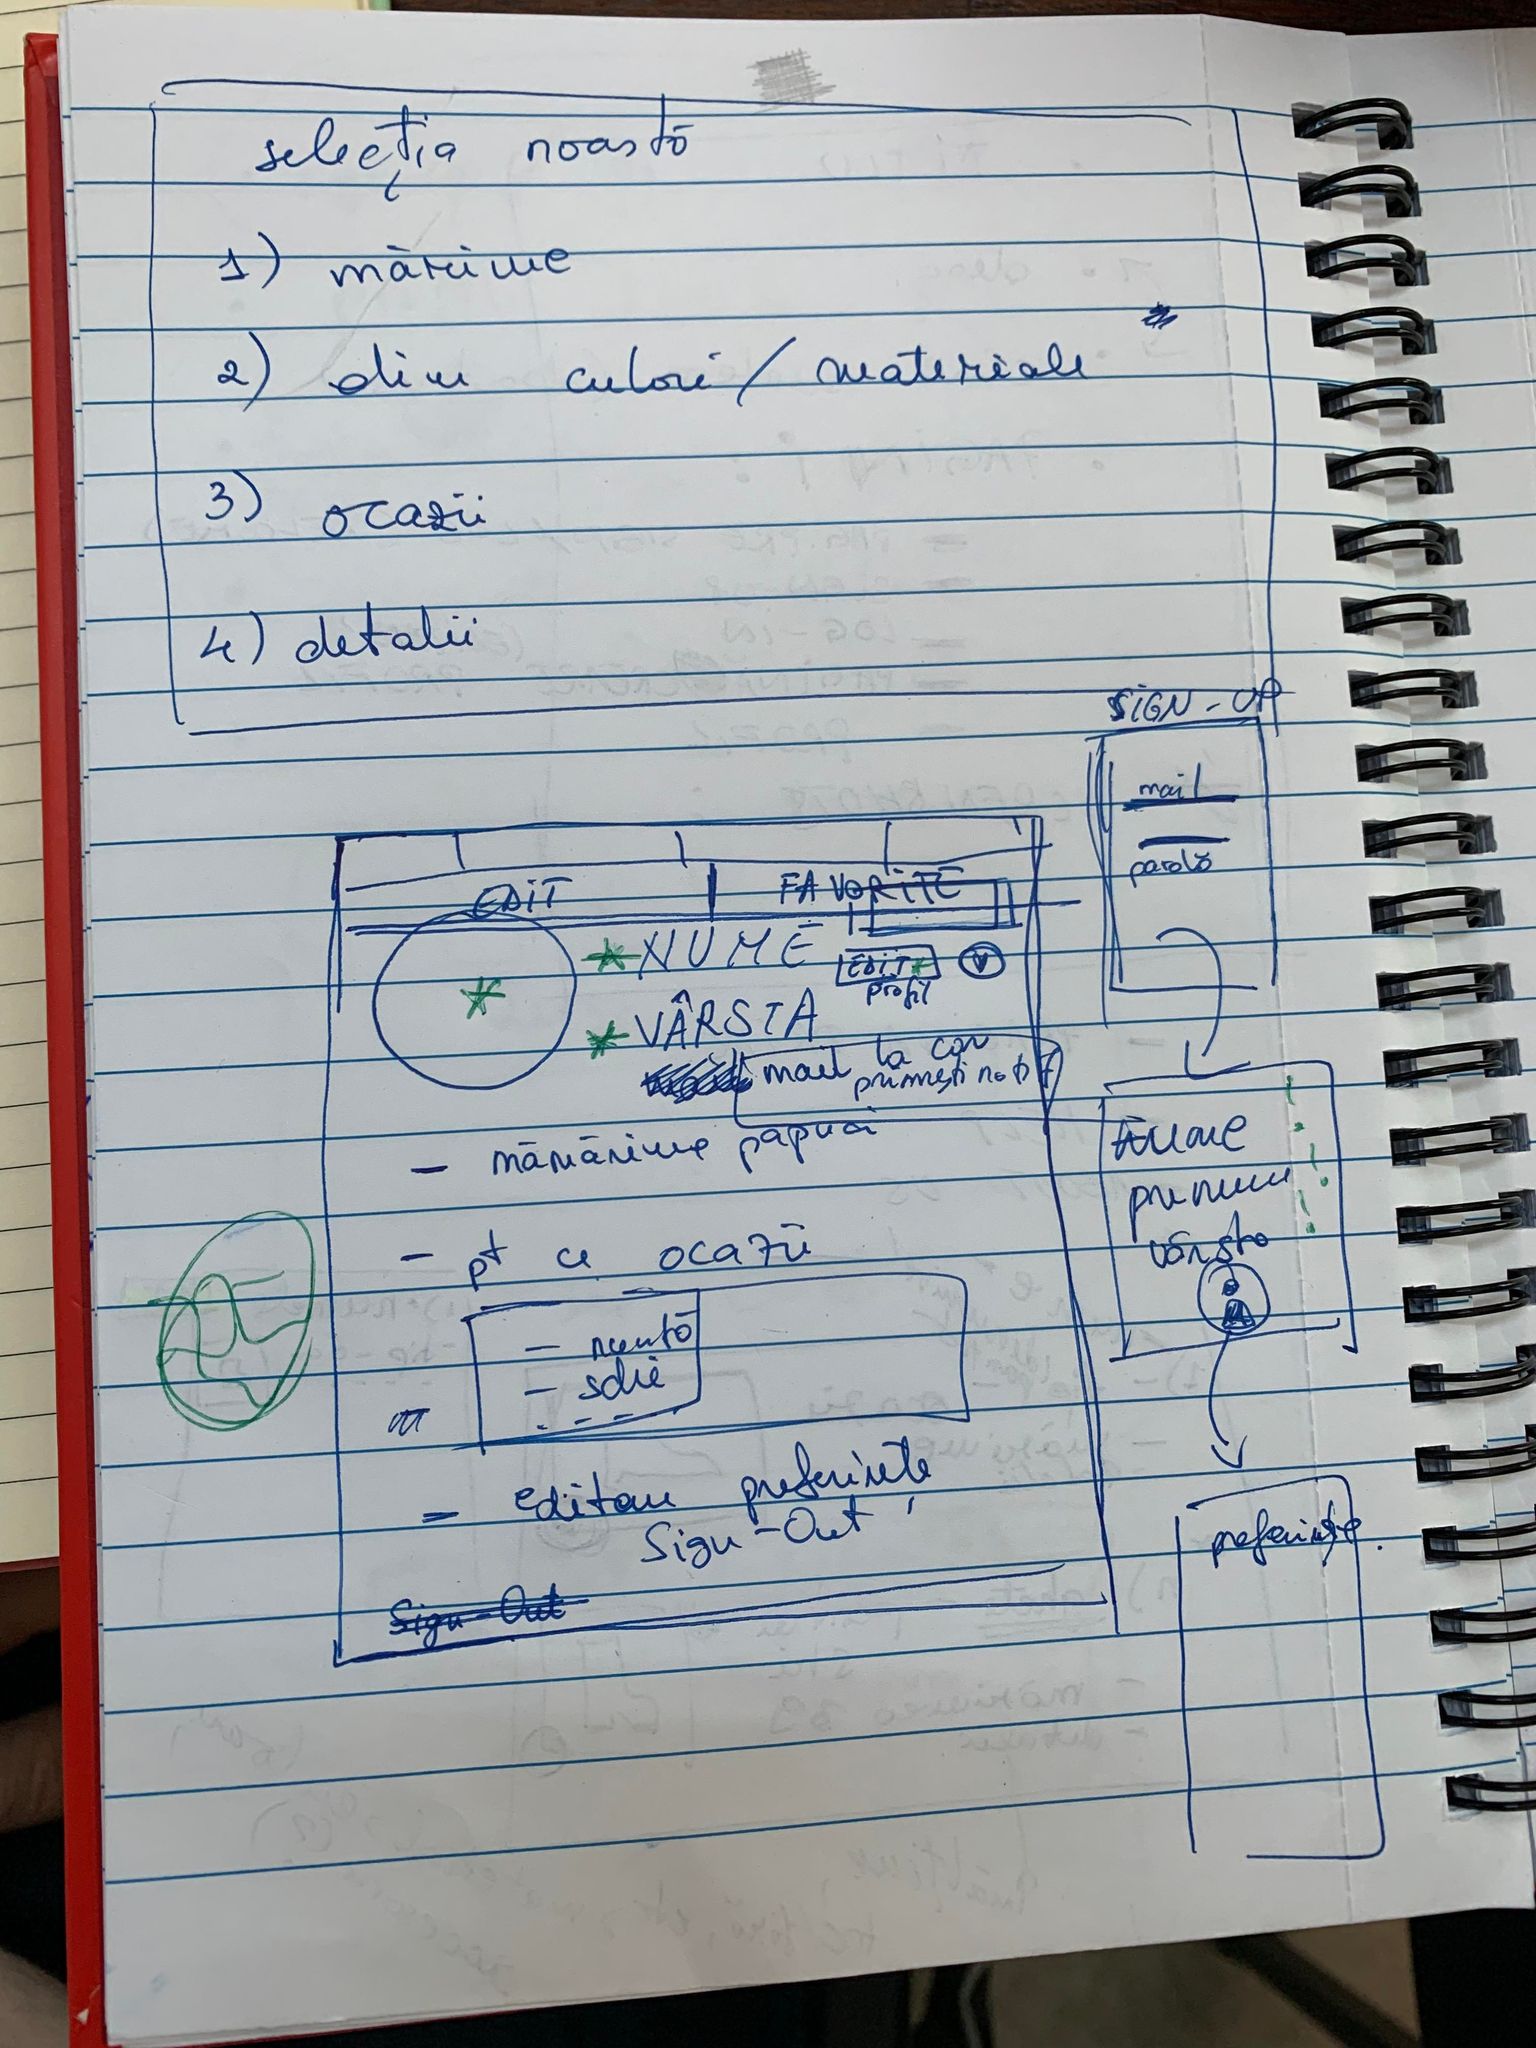 selecția noastă
1) mărime
2) din culori / materiale
3) ocazii
4) detalii
SIGN-UP
mail
parolă
EDIT FAVORITE
NUME EDIT profil
VÂRSTA
mail la care primești notif
- mărărime papuci
- pt ce ocazii
- nuntă
- scoli
- editare preferințe
Sign-Out
Sign-Out
nume
prenume
vârsta
preferințe.